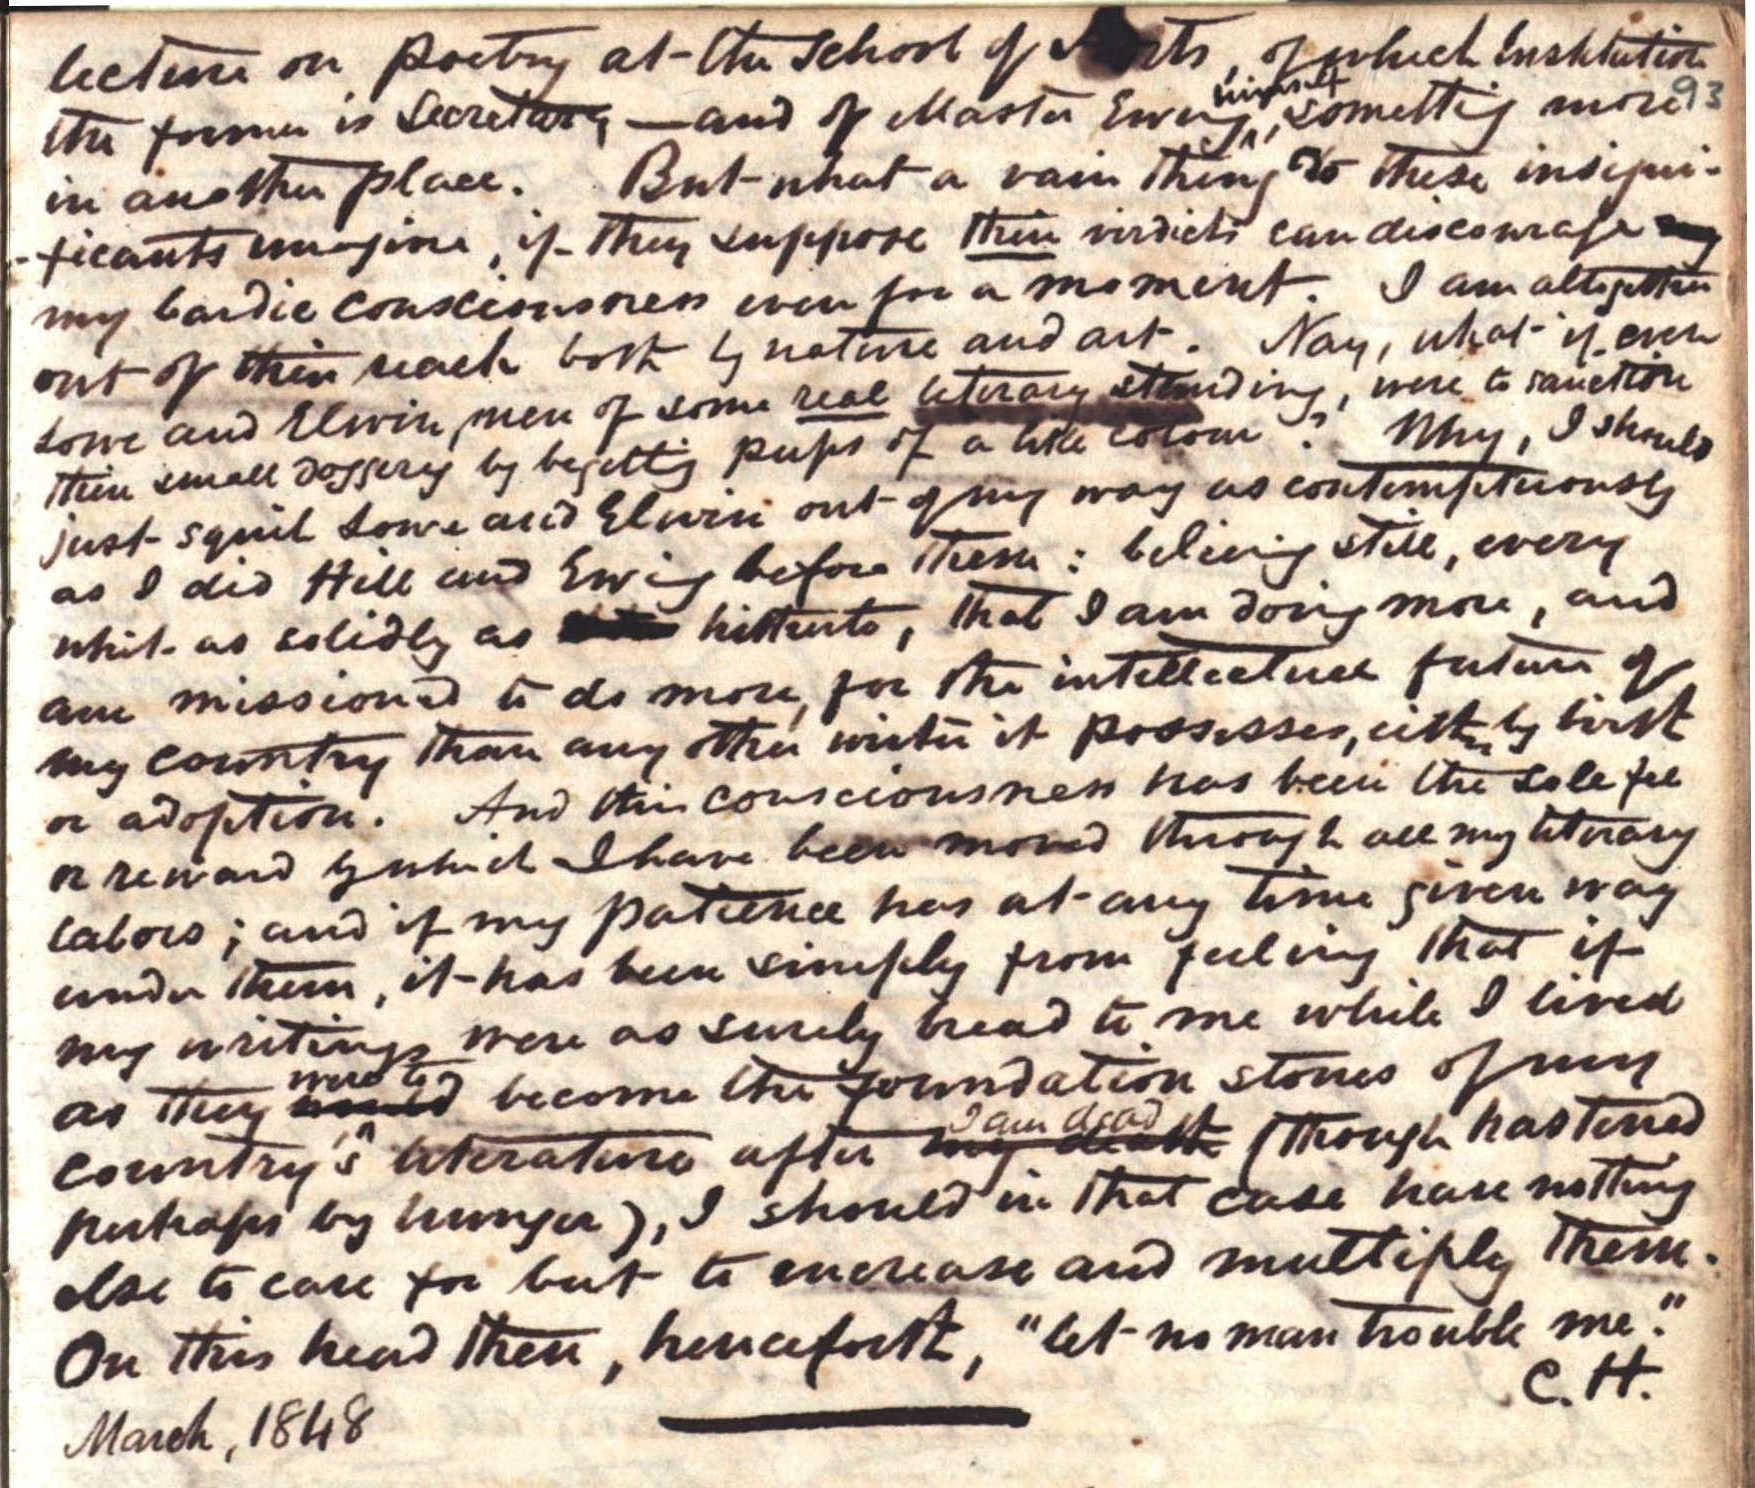 lecture on Poetry at the School of Arts, of which Institution
93
the former is Secretary,—and of Master Ewing himself, something more
in another place. But what a vain thing do these insigni-
-ficants imagine, if they suppose their verdicts can discourage my
my bardic consciousness even for a moment. I am altogether
out of their reach both by nature and art. Nay, what if even
Lowe and Elwin, men of some real literary standing, were to sanction
their small doggery by begetting pups of a like colour? Why, I should
just squib Lowe and Elwin out of my way as contemptuously
as I did Hill and Ewing before them: believing still, every
whit as solidly as hitherto, that I am doing more, and
am missioned to do more, for the intellectual future of
my country than any other writer it possesses, either by birth
or adoption. And this consciousness has been the sole fee
or reward by which I have been moved through all my literary
labors; and if my patience has at any time given way
under them, it has been simply from feeling that if
my writings were as surely bread to me while I lived
as they would were to become the foundation stones of my
country's literature after my death I am dead (though hastened
perhaps by hunger), I should in that case have nothing
else to care for but to increase and multiply them.
On this head then, henceforth, "let no man trouble me."
C. H.
March, 1848